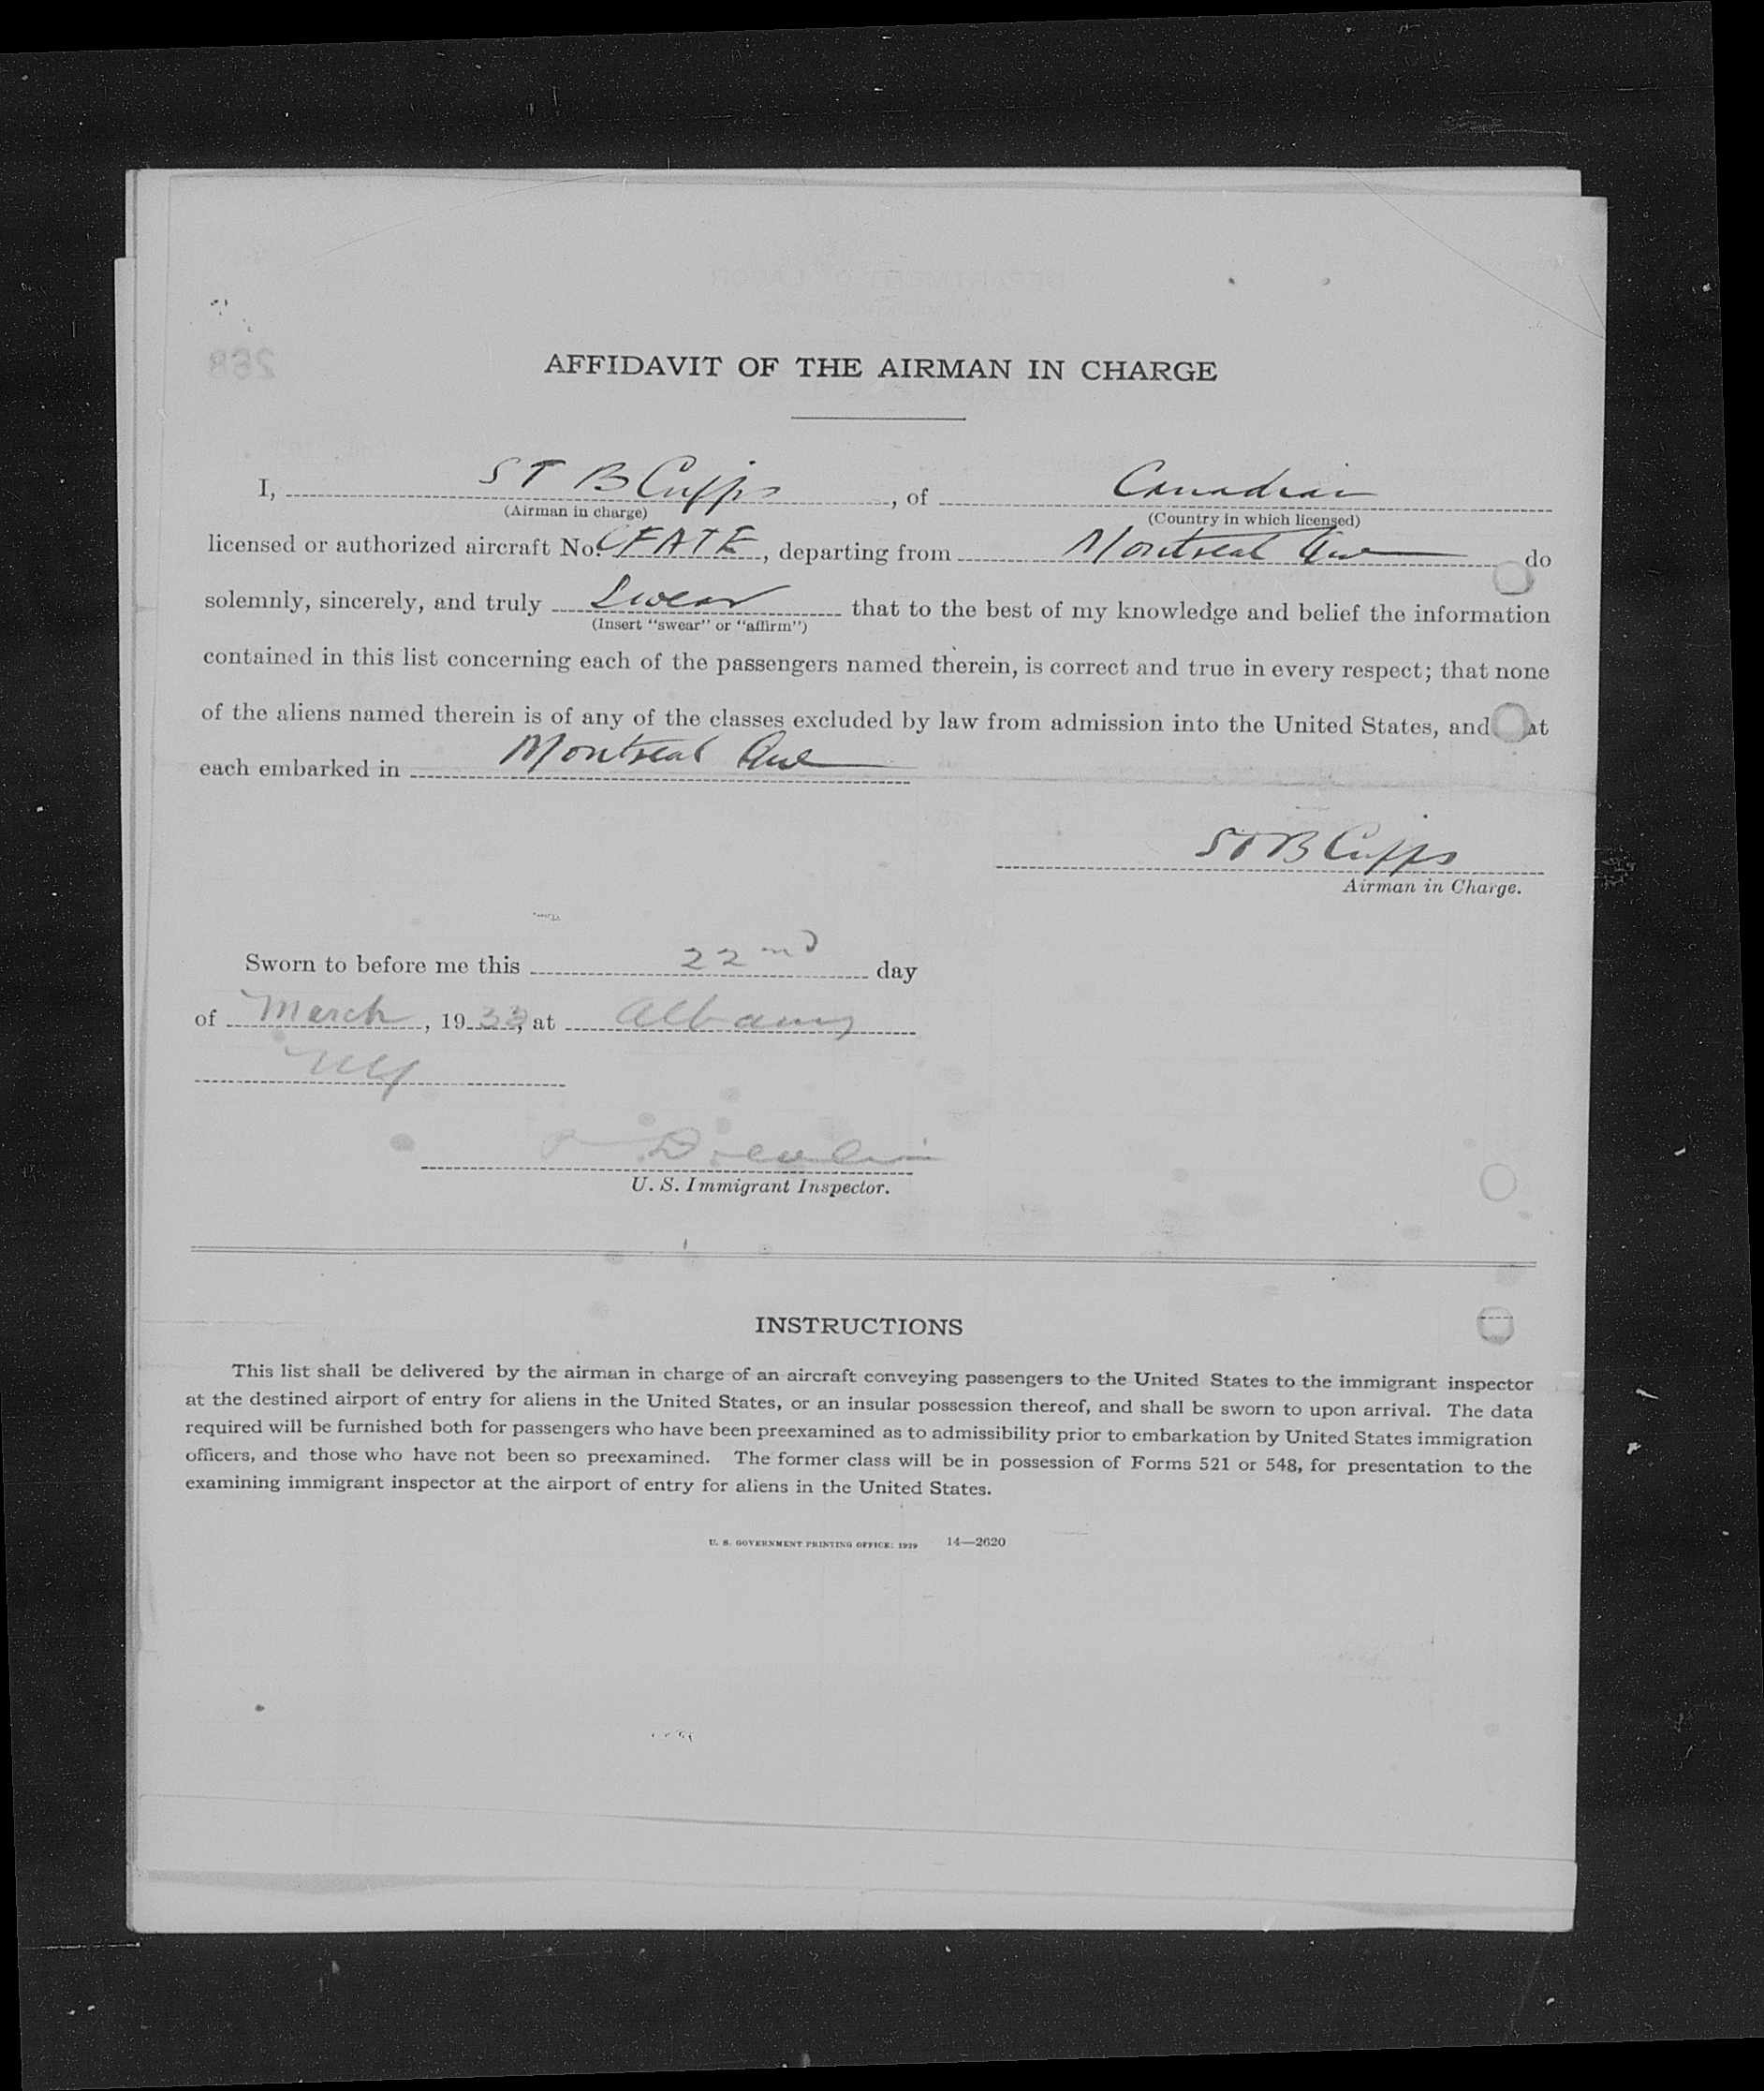 AFFIDAVIT OF THE AIRMAN IN CHARGE
I, S T B Cripps, of Canadian
(Airman in charge) (Country in which licensed)
licensed or authorized aircraft No. CFATE, departing from Montreal Que do
solemnly, sincerely, and truly Swear that to the best of my knowledge and belief the information
(Insert "swear" or "affirm")
contained in this list concerning each of the passengers named therein, is correct and true in every respect; that none
of the aliens named therein is of any of the classes excluded by law from admission into the United States, and at
each embarked in Montreal Que
S T B Cripps
Airman in Charge.
Sworn to before me this 22nd day
of March, 1933, at Albany
NY
U. S. Immigrant Inspector.
INSTRUCTIONS
This list shall be delivered by the airman in charge of an aircraft conveying passengers to the United States to the immigrant inspector
at the destined airport of entry for aliens in the United States, or an insular possession thereof, and shall be sworn to upon arrival. The data
required will be furnished both for passengers who have been preexamined as to admissibility prior to embarkation by United States immigration
officers, and those who have not been so preexamined. The former class will be in possession of Forms 521 or 548, for presentation to the
examining immigrant inspector at the airport of entry for aliens in the United States.
U. S. GOVERNMENT PRINTING OFFICE: 1929 14—2620